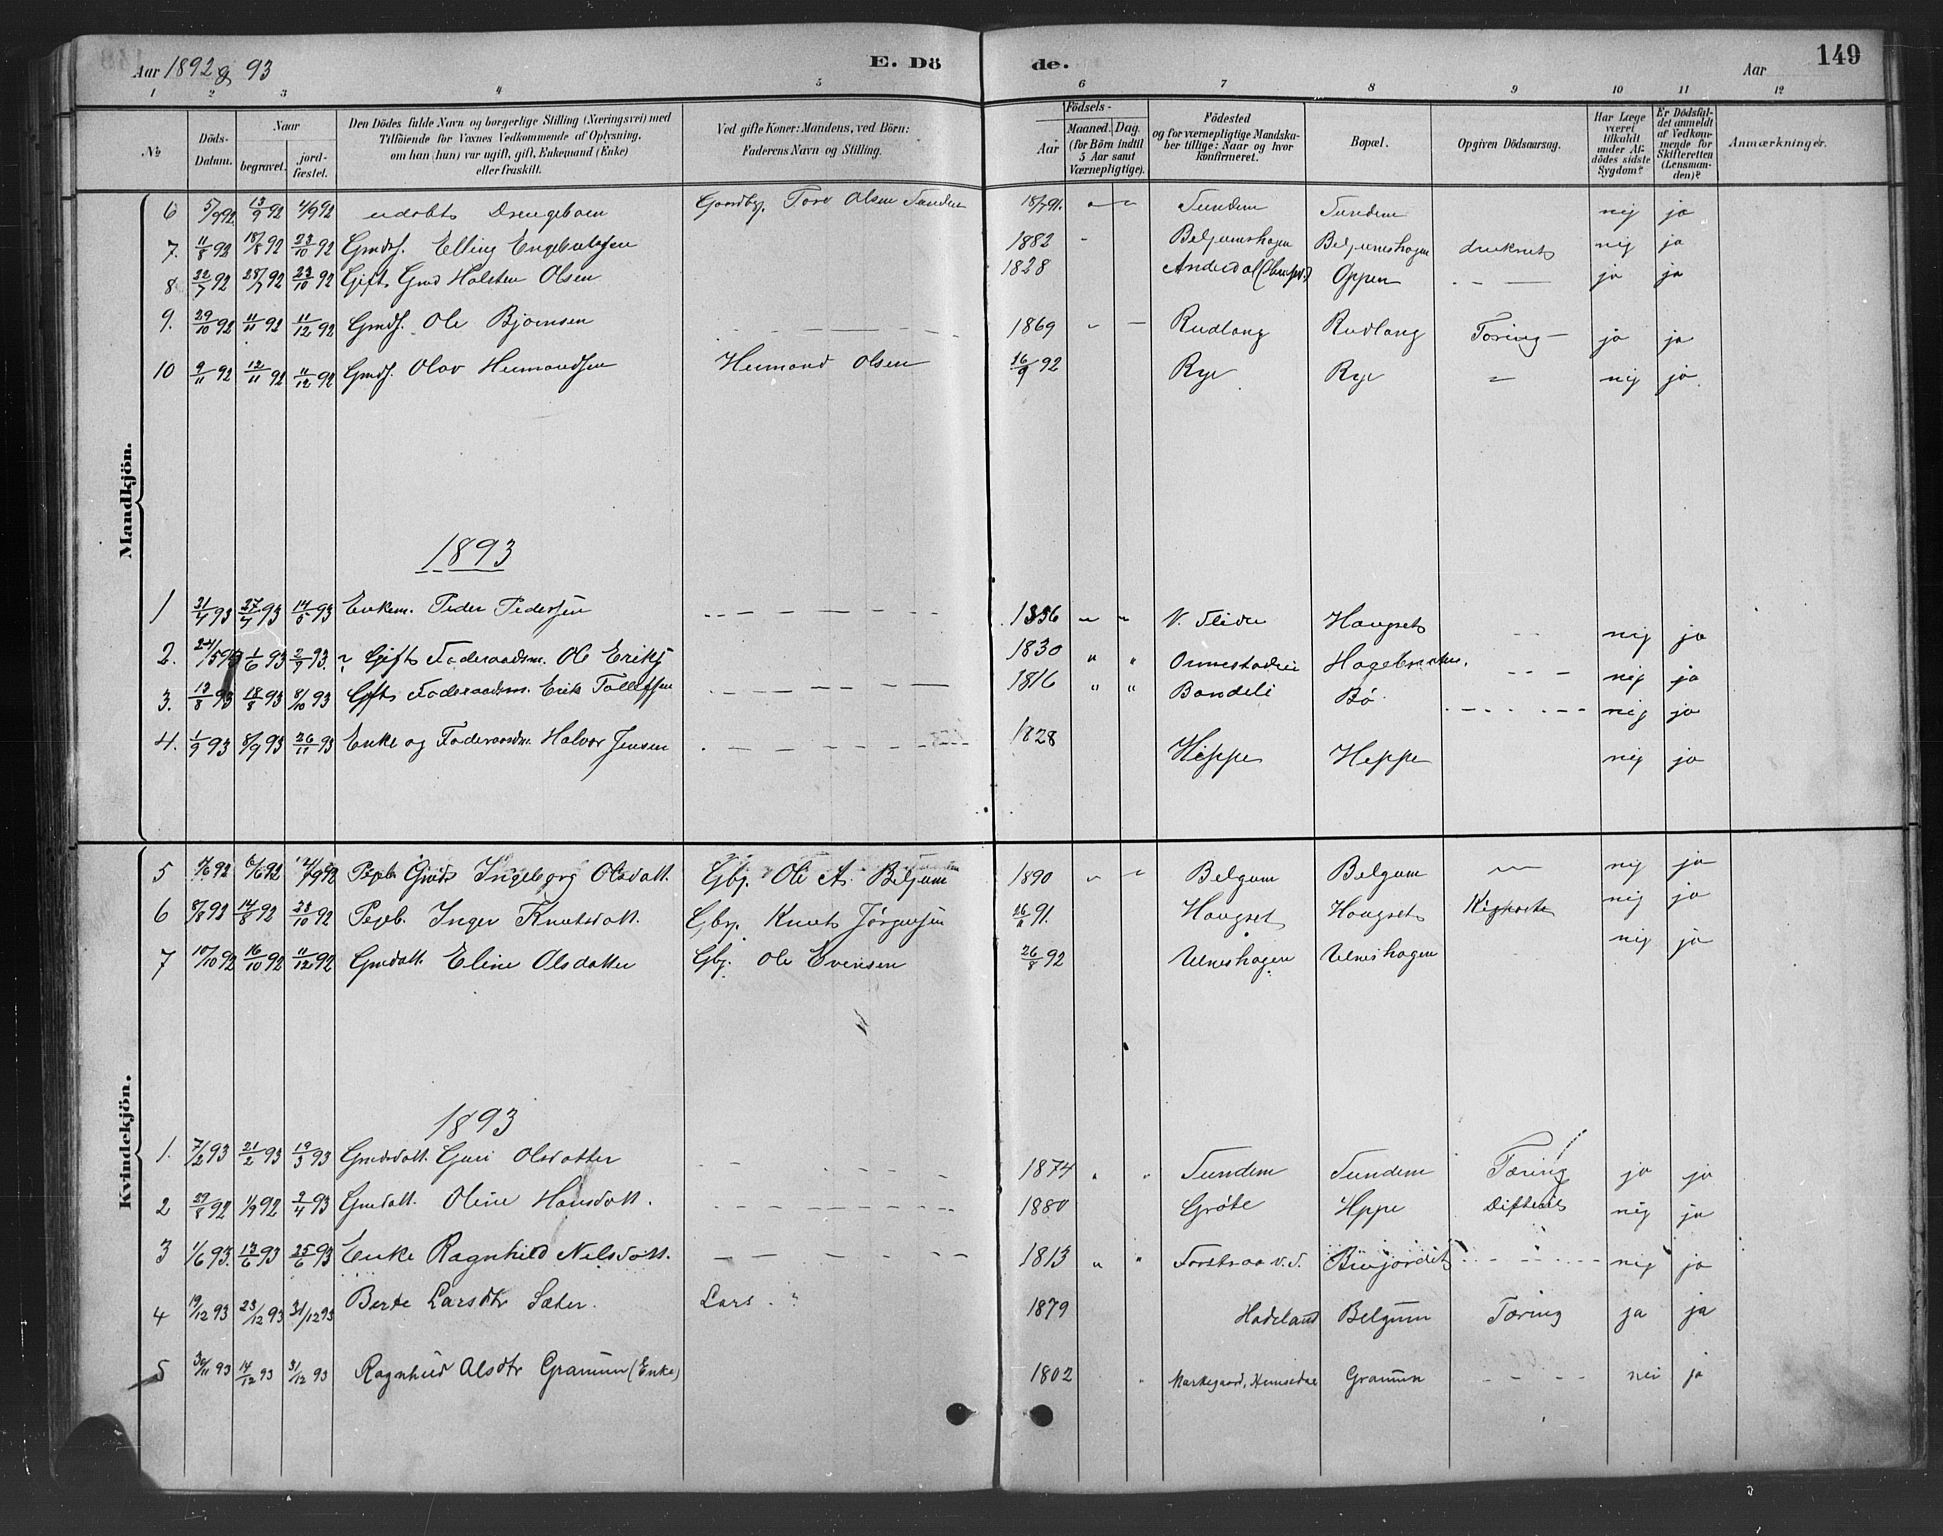 Aar 1892 & 93
E. Dö
de.
Aar
149
1 2 3 4 5 6 7 8 9 10 11 12
№
Döds-Datum.
Naar
begravet.
jord-fæstet.
Den Dödes fulde Navn og borgerlige Stilling (Næringsvei) med
Tilföiende for Voxnes Vedkommende af Oplysning,
om han (hun) var ugift, gift, Enkemand (Enke)
eller fraskilt.
Ved gifte Koner: Mandens, ved Börn:
Faderens Navn og Stilling.
Födsels-
Aar
Maaned. Dag.
(for Börn indtil
5 Aar samt
Værnepligtige).
Födested
og for værnepligtige Mandska-
ber tillige: Naar og hvor
konfirmeret.
Bopæl.
Opgiven Dödsaarsag.
Har Læge
været
tilkaldt
under Af-
dödes sidste
Sygdom?
Er Dödsfal-
det anmeldt
af Vedkom-
mende for
Skifteretten
(Lensman-
den)?
Anmærkninger.
Mandkjön.
6 5/9 92 13/9 92 4/9 92 udøbt Drengebarn Gaardbg. Tore Olsen Sundem 18/7 91. Sundem Sundem nej ja
7. 11/8 92 18/8 92 23/10 92 Gmds. Elling Engebretsen 1882 Belgumshagen Belgumshagen druknet nej ja
8 22/7 92 28/7 92 23/10 92 Gift Gmd Holsten Olsen 1828 Oppen ja ja
9. 29/10 92 11/11 92 11/12 92 Gmds. Ole Bjørnsen 1869 Rudlang Rudlang Tæring ja ja
10 9/11 92 12/11 92 11/12 92 Gmds. Olav Hermandsen Hermand Olsen 16/9 92 Rye Rye nej ja.
1893
1 21/4 93 27/4 93 14/5 93 Enkem. Peder Pedersen 1836 N. Fliden Haugset nej ja
2. 1/6 93 2/7 93. Gift Føderaadsm. Ole Eriks 1830 nej ja
3. 13/8 93 18/8 93 8/10 93 Gift Føderaadsm. Erik Tollefsen 1816 Bondeli Bø nej ja
4. 1/9 93 8/9 93 26/11 93 Enke og Føderaadsm. Halvor Jensen 1828 Heppe Heppe nej ja
Kvindekjön.
5 6/6 92 Pigeb. Ingeborg Olsdatt. Gbj. Ole A. Belgum 1890 Belgum Belgum nej ja
6 8/8 92 14/8 92 23/10 92 Pigeb. Inger Knutsdatt. Gbr. Knut Jørgensen 91. Haugset Haugset Kighoste nej ja
7 10/10 92 16/10 92 11/12 92 Gmdatt. Eline Olsdatter Gbj. Ole Evensen 26/8 92 Ulneshagen Ulneshagen nej ja
1893
1. 7/2 93 21/2 93 19/3 93 Gmdsdatt. Guri Olsdatter 1874 Sundem Sundem Tæring ja ja
2 29/8 92 1/9 92 2/4 93 Gmdatt. Oline Hansdatt. 1880 Grøte Hppe Difterit nej ja
3 1/6 93. 13/6 93 25/6 93 Enke Ragnhild Nilsdatt. 1813 nej ja
4 19/12 93 23/12 93 31/12 93 Berte Larsdtr Sæter. Lars " 1879 Hadeland Belgum Tæring ja ja
5 30/11 93 14/12 93 31/12 93 Ragnhild Olsdtr Granum (Enke) 1802 Markegaard, Hemsedal Granum nei ja